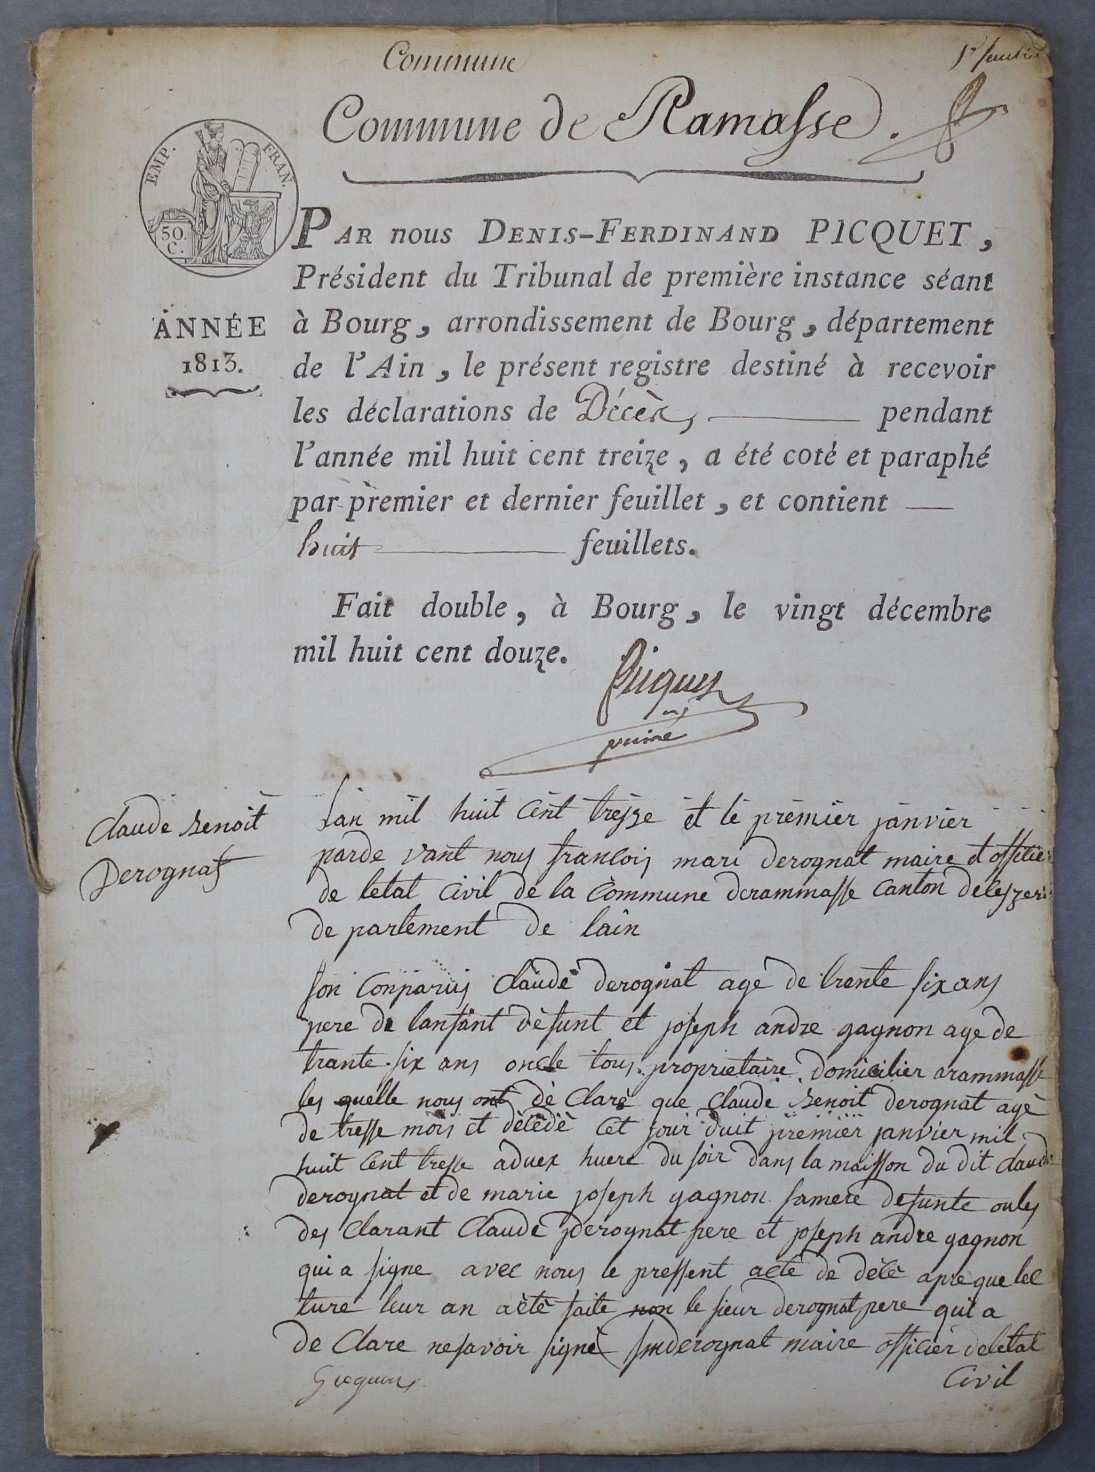 Commune
1er feuillet
Commune de Ramasse.
EMP. FRAN.
50. C.
ANNÉE
1813.
PAR nous DENIS-FERDINAND PICQUET,
Président du Tribunal de première instance séant
à Bourg, arrondissement de Bourg, département
de l'Ain, le présent registre destiné à recevoir
les déclarations de Décès, pendant
l'année mil huit cent treize, a été coté et paraphé
par premier et dernier feuillet, et contient
huit feuillets.
Fait double, à Bourg, le vingt décembre
mil huit cent douze.
Picquet
Claude Benoit
Derognat
Lan mil huit cent tresze et le premier janvier
parde vant nous francois mari derognat maire et officier
de letat civil de la Commune derammasse canton deleyzeri
de partement de lain
son Conparus Claude derognat age de trente six ans
pere de lanfant defunt et joseph andre gagnon age de
trante six ans oncle tous proprietaire domicilier arammasse
les quelle nous ont dè Clarè que Claude Benoit derognat agè
de tresse mois et dècèdè cet jour duit premier janvier mil
huit cent tresse aduex huere du soir dans la maisson du dit claude
derognat et de marie joseph gagnon samere defunte oules
des clarant Claude Derognat pere et joseph andre gagnon
qui a signe avec nous le pressent acte de dècè apre que lec
ture leur an acte faite non le sieur derognat pere qui a
de Clare nesavoir signè fmderognat maire officier deletat
Civil